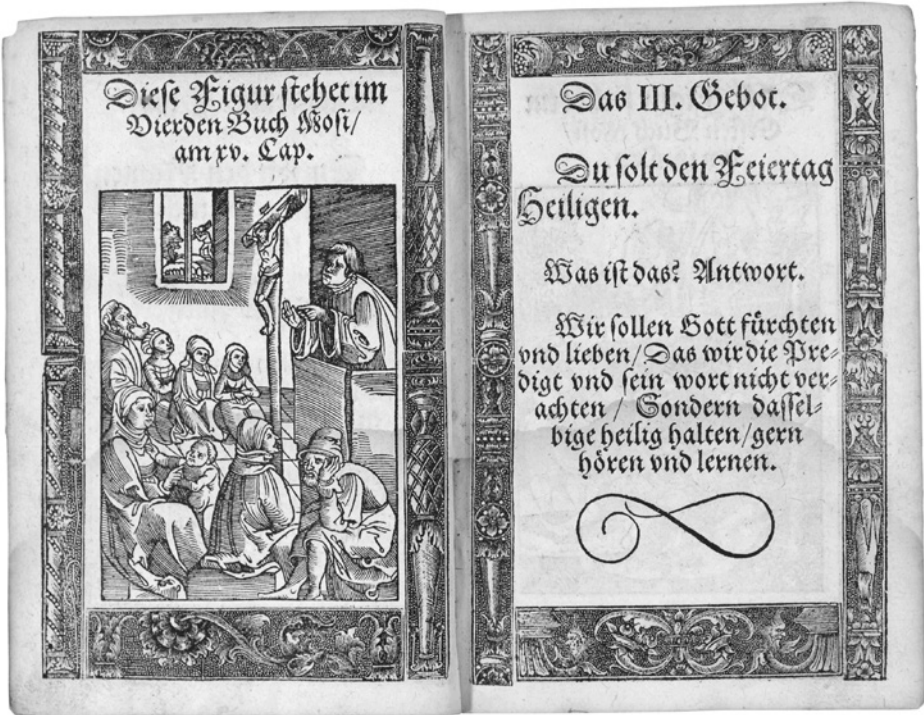 Diese Figur stehet im
Vierden Buch Mosi/
am xv. Cap.
Das III. Gebot.
Du solt den Feiertag
Heiligen.
Was ist das? Antwort.
Wir sollen Gott fürchten
vnd lieben/Das wir die Pre⸗
digt vnd sein wort nicht ver⸗
achten / Sondern dassel⸗
bige heilig halten/gern
hören vnd lernen.